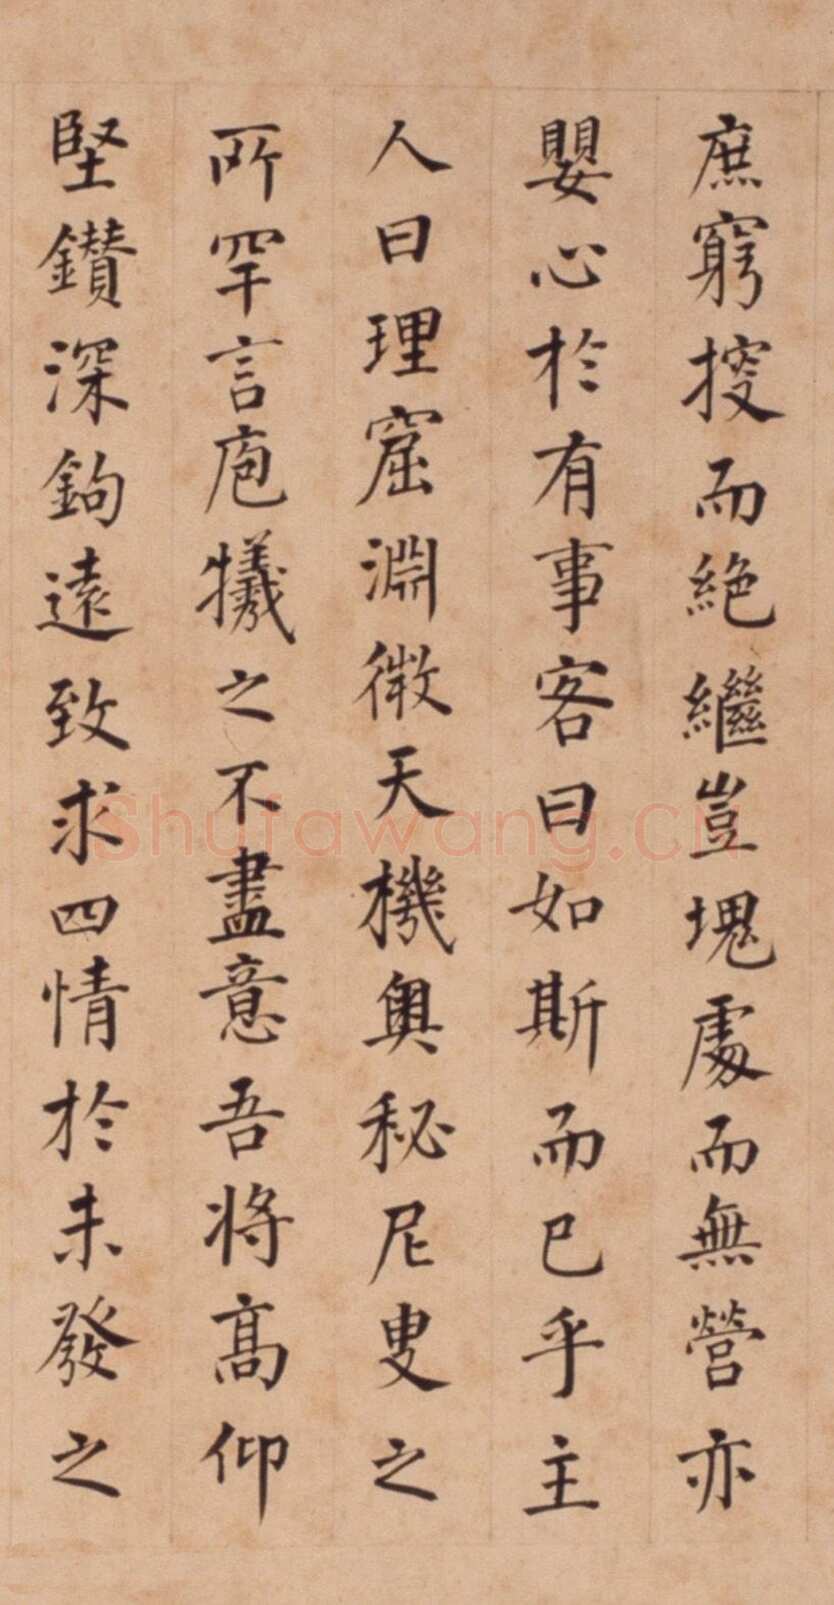 庶窮搜而絶繼豈塊處而無營亦
嬰心於有事客曰如斯而已乎主
人曰理窟淵微天機奥秘尼叟之
所罕言庖犧之不盡意吾將高仰
堅鑚深鉤遠致求四情於未發之
Shufawang.cn